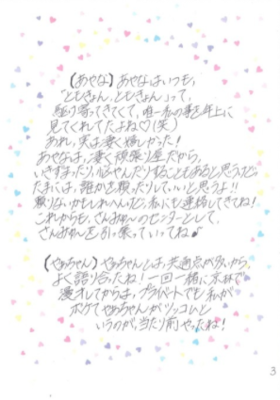 (あやな) あやなはいつも、
"ともきょん、ともきょん"って、
駆け寄ってきてくて、唯一私の事を年上に
見てくれてたよね♡(笑)
あれ、実は凄く嬉しかった!
あやなは、凄く頑張り屋だから、
いきずまったり、悩んだりすることもあると思うけど、
たまには、誰かを頼ったりしていいと思うよ!!
頼りないかもしれへんけど、私にも連絡してきてね!
これからも、さんみゅ〜のセンターとして、
さんみゅ〜を引っ張っていってね♪
(やぁちゃん) やぁちゃんとは、共通点が多いから、
よく語り合ったね! 一回一緒に
漫才してからは、プライベートでも私が
ボケてやぁちゃんがツッコむと
いうのが、当たり前やったね!
3